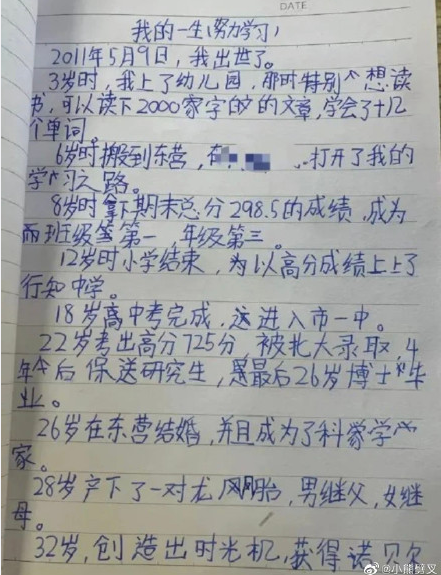 DATE
我的一生(努力学习)
2011年5月9日，我出世了。
3岁时，我上了幼儿园，那时特别想读
书，可以读下2000家字的文章，学会了十几
个单词。
6岁时搬到东营，在 打开了我的
学习之路。
8岁时拿下期末总分298.5的成绩，成为
班级第一，年级第三。
12岁时小学结束，为以高分成绩上上了
行知中学。
18岁高中考完成，进入市一中。
22岁考出高分725分，被北大录取，4
年后保送研究生，最后26岁博士毕
业。
26岁在东营结婚，并且成为了科学
家。
28岁产下了一对龙凤胎，男继父，女继
母。
32岁，创造出时光机，获得诺贝尔
@小熊剪叉